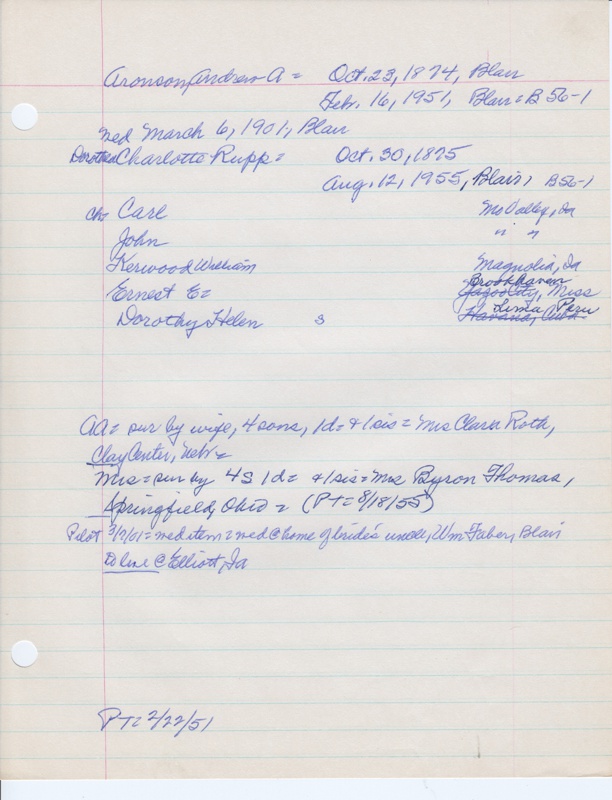 Aronson, Andrew A = Oct. 23, 1874, Blair
Febr. 16, 1951, Blair = B 56-1
Wed March 6, 1901, Blair
Dorothea Charlotte Rupp = Oct. 30, 1875
Aug. 12, 1955, Blair, B 56-1
ch Carl Mo Valley, Ia
John " "
Kerwood William Magnolia, Ia
Brookhaven
Ernest E = Yazoo City, Miss
Lima, Peru
Dorothy Helen s Havana, Cuba
AA = sur by wife, 4 sons, 1d = & 1 sis = Mrs Clara Roth,
Clay Center, Nebr =
Mrs = sur by 4 S 1d = & 1 sis = Mrs Byron Thomas,
Springfield, Ohio = (PT = 8/18/55)
Pilot 3/7/01 = wed item = wed @ home of bride's uncle, Wm Faber, Blair
to live @ Elliott, Ia
PT = 2/22/51